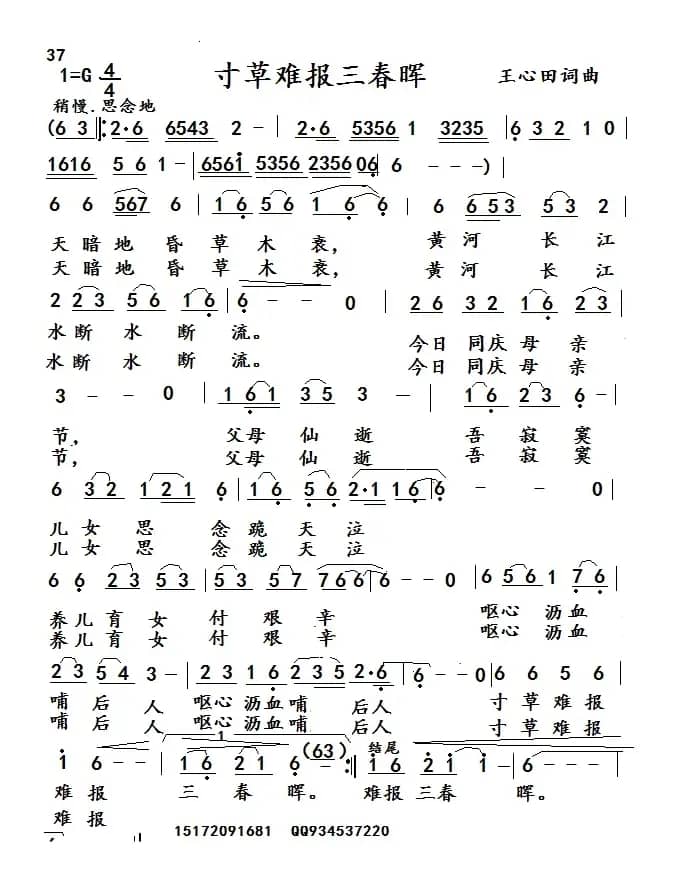 37
1=G 4/4 寸草难报三春晖 王心田词曲
稍慢.思念地
(6 3 |: 2·6 6543 2 - | 2·6 5356 1 3235 | 6 3 2 1 0 |
1616 5 6 1 - | 6561 5356 2356 06 | 6 - - -) |
6 6 567 6 | 1 6 5 6 1 6 6 | 6 6 5 3 5 3 2 |
天暗地昏草木衰， 黄河长江
天暗地昏草木衰， 黄河长江
2 2 3 5 6 1 6 | 6 - - 0 | 2 6 3 2 1 6 2 3 |
水断水断流。 今日同庆母亲
水断水断流。 今日同庆母亲
3 - - 0 | 1 6 1 3 5 3 | 1 6 2 3 6 - |
节， 父母仙逝 吾寂寞
节， 父母仙逝 吾寂寞
6 3 2 1 2 1 | 6 1 6 5 6 2·1 1 6 | 6 - - 0 |
儿女思念跪天泣
儿女思念跪天泣
6 6 2 3 5 3 | 5 3 5 7 7 6 6 | 6 - - 0 | 6 5 6 1 7 6 |
养儿育女付艰辛 呕心沥血
养儿育女付艰辛 呕心沥血
2 3 5 4 3 - | 2 3 1 6 2 3 5 2·6 | 6 - - 0 | 6 6 5 6 |
哺后人 呕心沥血哺后人 寸草难报
哺后人 呕心沥血哺后人 寸草难报
1
1 6 - - | 1 6 2 1 6 (63) - :| 结尾 1 6 2 1 1 - | 6 - - - |
难报三春晖。 难报三春晖。
难报
15172091681 QQ934537220